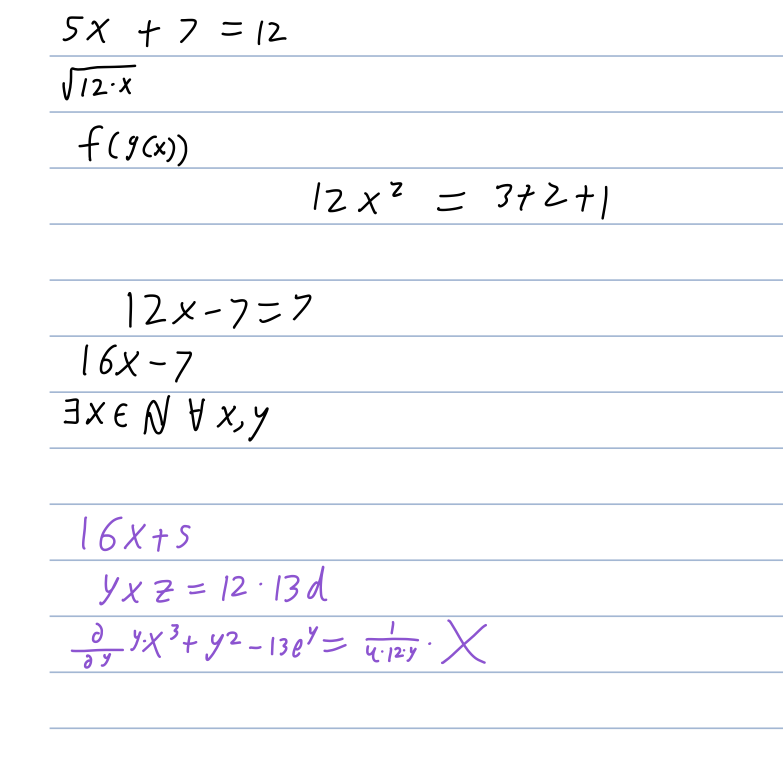 5x + 7 = 12
√(12·x)
f(g(x))
12x² = 3+2+1
12x-7=7
16x-7
∃x∈ℕ ∀x,y
16x+5
yxz = 12·13d
∂/∂y y·x³+y²-13e^y = 1/(4·12·y) · X